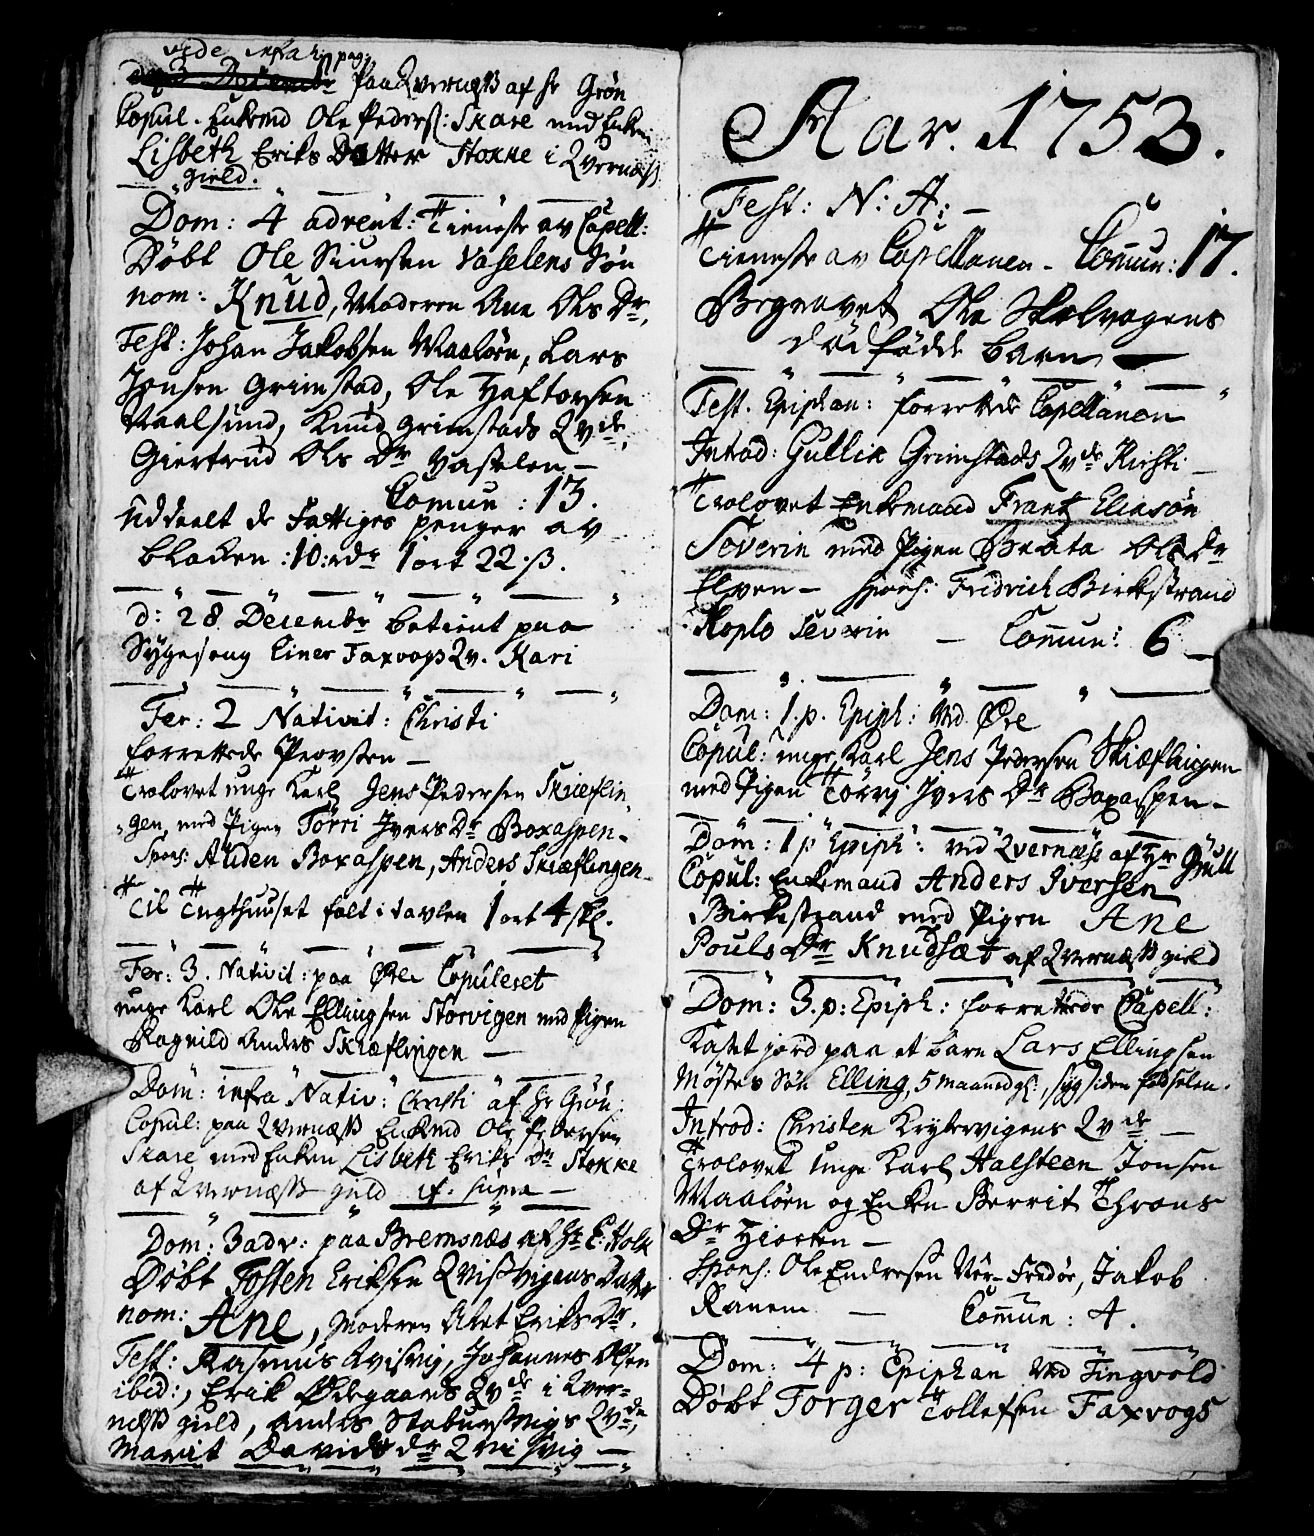 vide infra h: pag:
d: 3 Decembr paa Qvernæss af Hr Grøn
Copul. Enkemd Ole Peders: Skare med Enken
Lisbeth Eriks Datter Stokke i Qvernæss
gield.
Dom: 4 advent: Tieneste av Capell:
Døbt Ole Siursen Vaselens Søn
nom: Knud, Moderen Ane Ols Dr,
Test: Johan Jakobsen Maaløen, Lars
Jonsen Grimstad, Ole Haftorsen
Vaalsund, Knud Grimstads Qvde,
Giertrud Ols Dr Vaselen –
Comun: 13.
Uddeelt de Fattiges penger av
blocken: 10: rdr 1 ort 22. ß.
d: 28 Decembr betient paa
Sygeseng Einer Faxvogs Qv. Kari
Fer: 2 Nativit: Christi
forrettede Provsten –
Trolovet unge Karl Jens Pedersen Skieflin-
gen, med Pigen Torri Ivers Dr Boxaspen –
Spons: Auden Boxaspen, Anders Skiæflingen –
Til Tugthuuset falt i tavlen 1 ort 4 skl.
Fer: 3. Nativit: paa Øre Copuleret
unge Karl Ole Ellingsen Storvigen med Pigen
Ragnild Anders Skiæflingen –
Dom: infra Nativ: Christi af Hr Grøn
Copul: paa Qvernæss Enkemd Ole Pedersen
Skare med Enken Lisbeth Eriks Dr Stokke
af Qvernæss gield cf. supra –
Dom: 3 adv: paa Bremsnæs af Hr E: Holk
Døbt Josten Eriksen Qvisvigens Datter
nom: Ane, Moderen Alet Eriks Dr.
Test: Rasmus Kvisvig, Johannes Olsen
ibid:, Erik Ødegaards Qvde i Qver-
næss gield, Anders Staburssvigs Qvde,
Marit Davids dr Qvisvig –
Aar. 1753.
Fest: N: A: –
Tieneste av Capellanen – Comun: 17.
Begravet Ole Skolvogens
dødfødde barn –
Fest. Epiphan: forrettede Capellanen
Introd: Gullik Grimstads Qvde Kirsti –
Trolovet Enkemand Frantz Eliasøn
Severin med Pigen Beata Ols Dr
Elven – Spons: Fridrich Birkestrand
Hoplo Severin – Comun: 6 –
Dom: 1. p. Epiph: Ved Øre
Copul: unge Karl Jens Pedersen Skiæflingen
med Pigen Torry Ivers Dr Boxaspen –
Dom: 1 p Epiph: ved Qvernæs af Hr Grøn
Copul: Enkemand Anders Iversen
Birkestrand med Pigen Ane
Pouls Dr Knudsæt af Qvernæss gield
Dom: 3. p: Epiph: forrettede Capell:
Kastet jord paa et barn Lars Ellingsen
Møstes Søn Elling, 5 maanedgl:, syg siden fødselen.
Introd: Christen Krykevigens Qvde –
Trolovet unge Karl Halsteen Jonsen
Maaløen og Enken Berrit Throns
Dr Hiorten –
Spons: Ole Endresen Nor-Fredøe, Jakob
Ranem – Comun: 4.
Dom: 4 p: Epiphan ved Tingvold
Døbt Torger Tollefsen Faxvogs